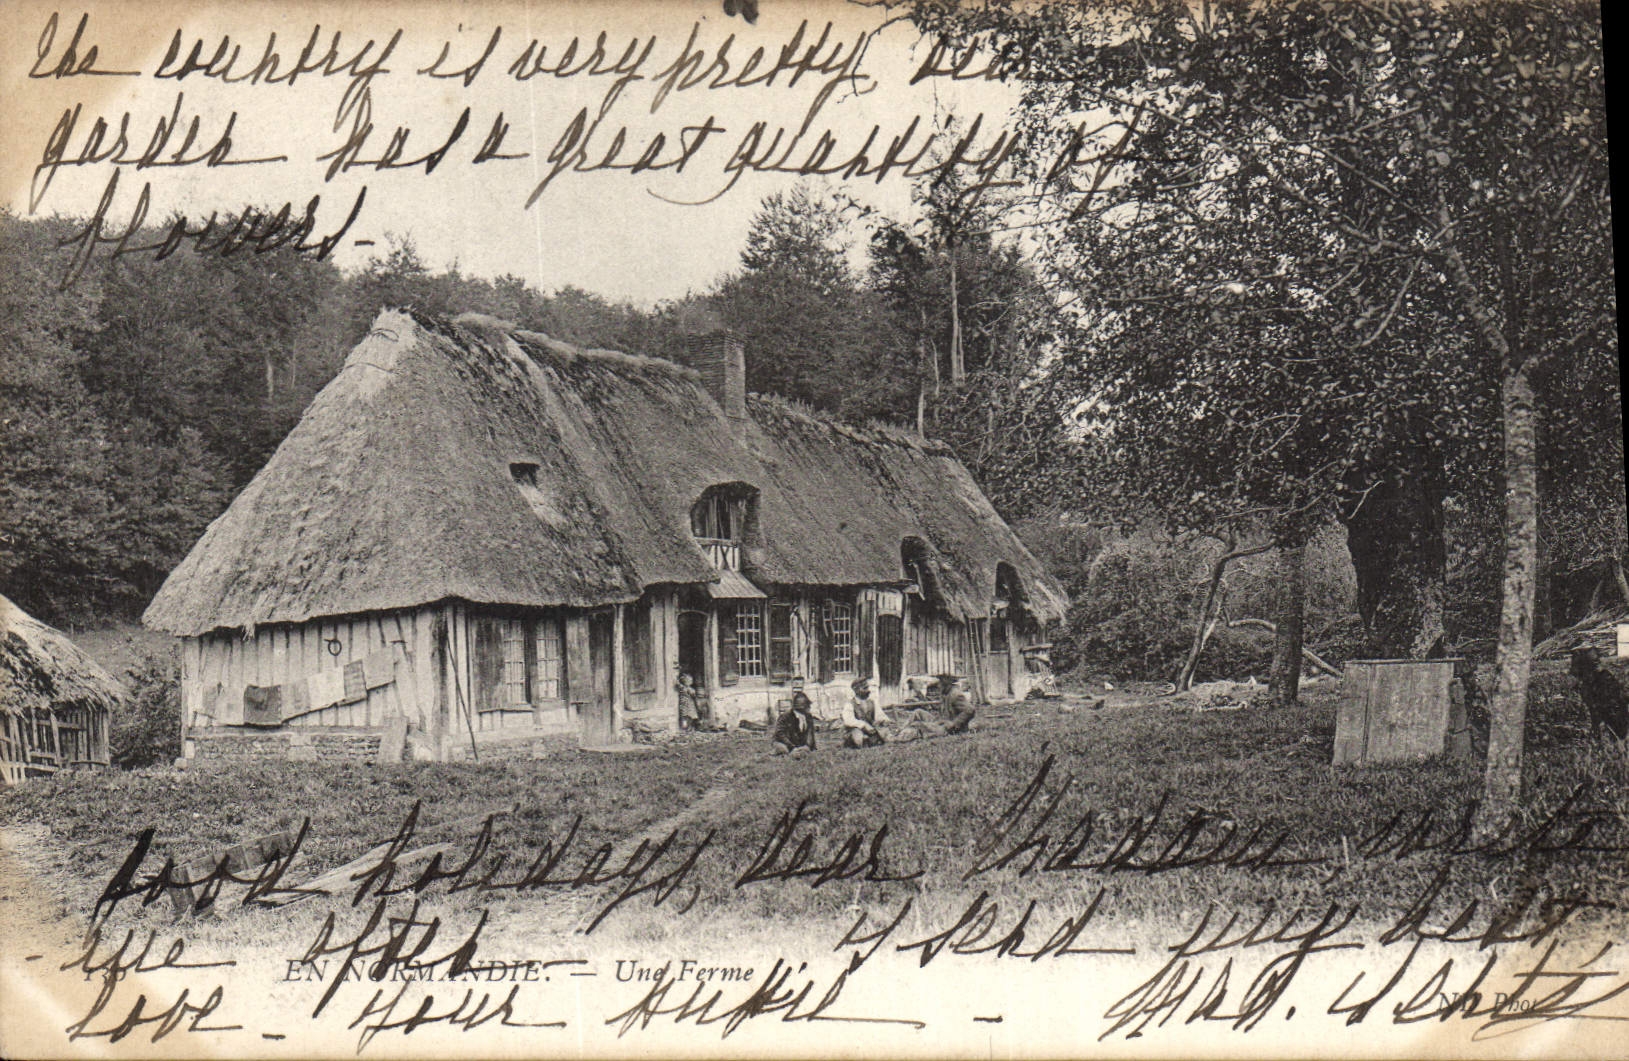 The country is very pretty, our
garden has a great quantity of
flowers -
Good holidays, dear Madam, write
- me often - I send my best
love - Your
EN NORMANDIE. — Une Ferme
ND Phot